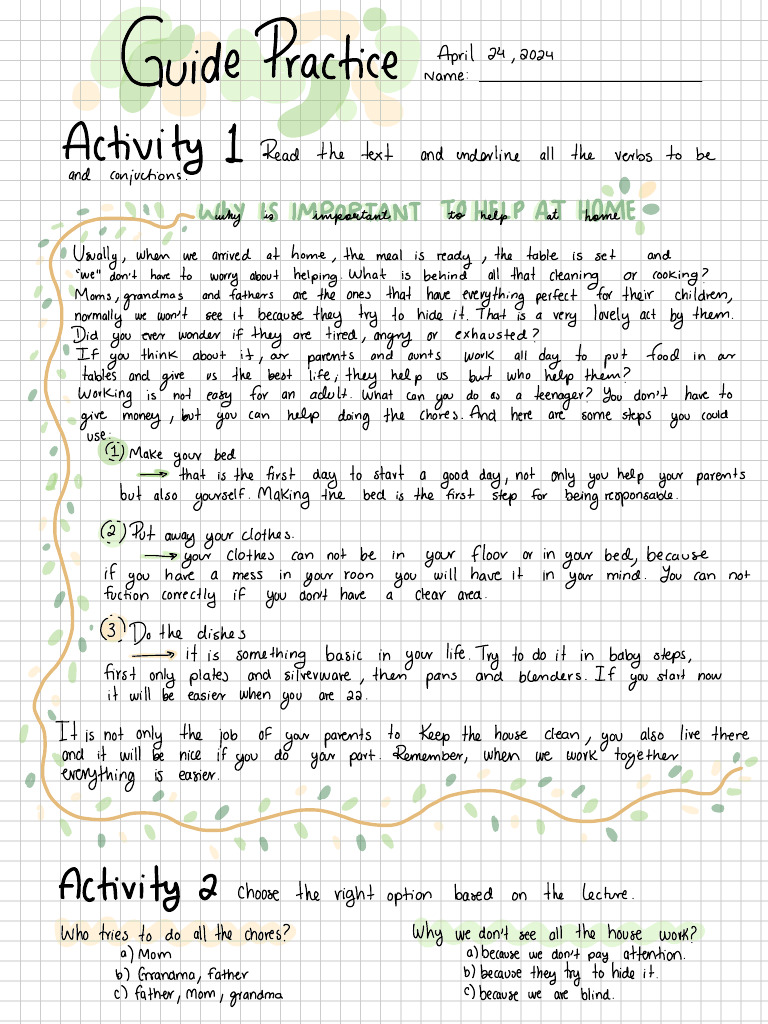 Guide Practice
April 24, 2024
Name:
Activity 1 Read the text and underline all the verbs to be
and conjuctions.
WHY IS IMPORTANT TO HELP AT HOME
why is important to help at home
Usually, when we arrived at home, the meal is ready, the table is set and
"we" don't have to worry about helping. What is behind all that cleaning or cooking?
Moms, grandmas and fathers are the ones that have everything perfect for their children,
normally we won't see it because they try to hide it. That is a very lovely act by them.
Did you ever wonder if they are tired, angry or exhausted?
If you think about it, our parents and aunts work all day to put food in our
tables and give us the best life, they help us but who help them?
Working is not easy for an adult. What can you do as a teenager? You don't have to
give money, but you can help doing the chores. And here are some steps you could
use:
(1) Make your bed
→ that is the first day to start a good day, not only you help your parents
but also yourself. Making the bed is the first step for being responsable.
(2) Put away your clothes.
→ your clothes can not be in your floor or in your bed, because
if you have a mess in your roon you will have it in your mind. You can not
fuction correctly if you don't have a clear area.
(3) Do the dishes
→ it is something basic in your life. Try to do it in baby steps,
first only plates and silverware, then pans and blenders. If you start now
it will be easier when you are 22.
It is not only the job of your parents to keep the house clean, you also live there
and it will be nice if you do your part. Remember, when we work together
everything is easier.
Activity 2 Choose the right option based on the lecture.
Who tries to do all the chores?
a) Mom
b) Grandma, father
c) father, Mom, grandma
Why we don't see all the house work?
a) because we don't pay attention.
b) because they try to hide it.
c) because we are blind.